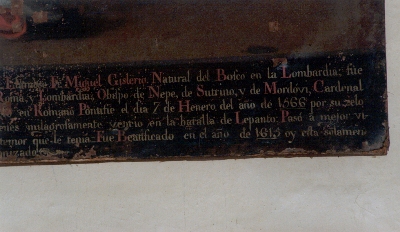 Eminmo Fr. Miguel Gislerio, Natural del Bosco en la Lombardia; fue
Roma, y Lombardia; Obispo de Nepe, de Sutrino, y de Mondovi, Cardenal
en Romano Pontifie el dia 7 de Henero, del año de 1566 por su zelo
milagrosamente vencio en la batalla de Lepanto: Pasó a mejor vi
temor que le tenia. Fue Beatificado en el año de 1613 oy esta solamen